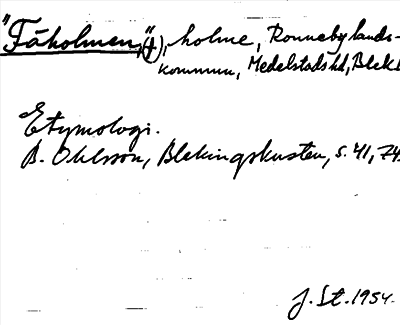 "Fäholmen," (†), holme, Ronneby lands-
kommun, Medelstads hd, Blek
Etymologi.
B. Ohlsson, Blekingskusten, s. 41, 74
J. St. 1954.